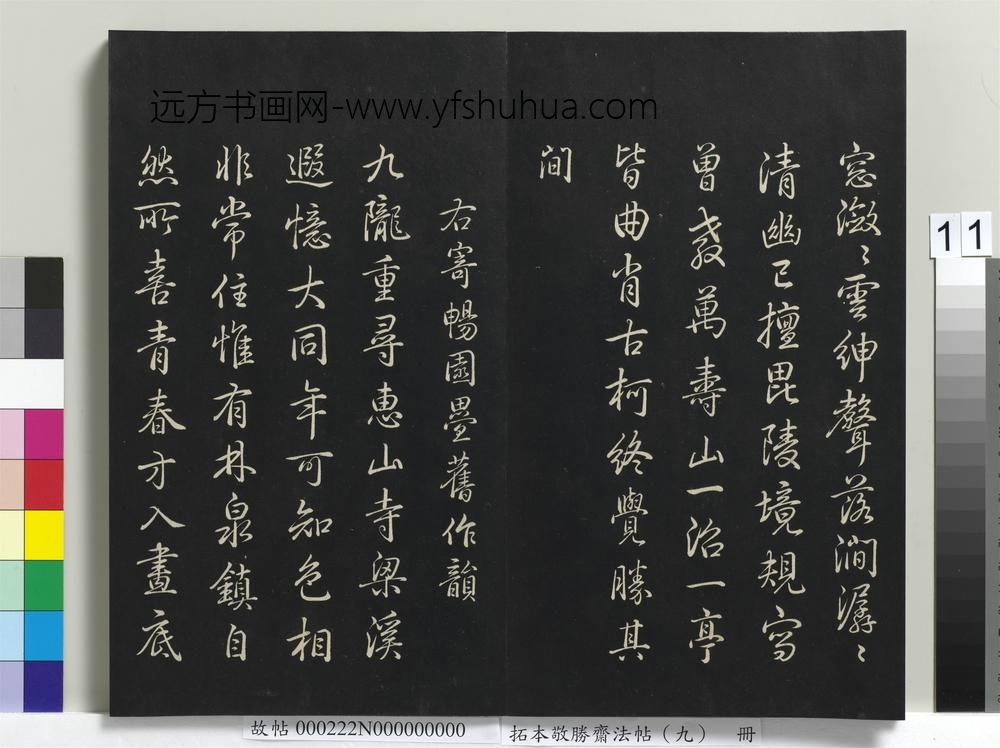 远方书画网-www.yfshuhua.com
窓潋〻雲紳聲落澗潺〻
清幽已擅毘陵境規寫
曽教萬壽山一沼一亭
皆曲肖古柯終覺勝其
間
右寄暢園疊舊作韻
九隴重尋惠山寺梁溪
遐憶大同年可知色相
非常住惟有林泉鎮自
然所喜青春才入畫底
11
故帖 000222N000000000
拓本敬勝齋法帖（九） 冊